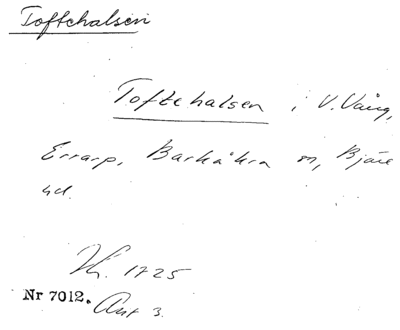 Toftehalsen
Toftehalsen i V. Vång,
Errarp, Barkåkra sn, Bjäre
hd.
Kh. 1725
Nr 7012. Ant 3.